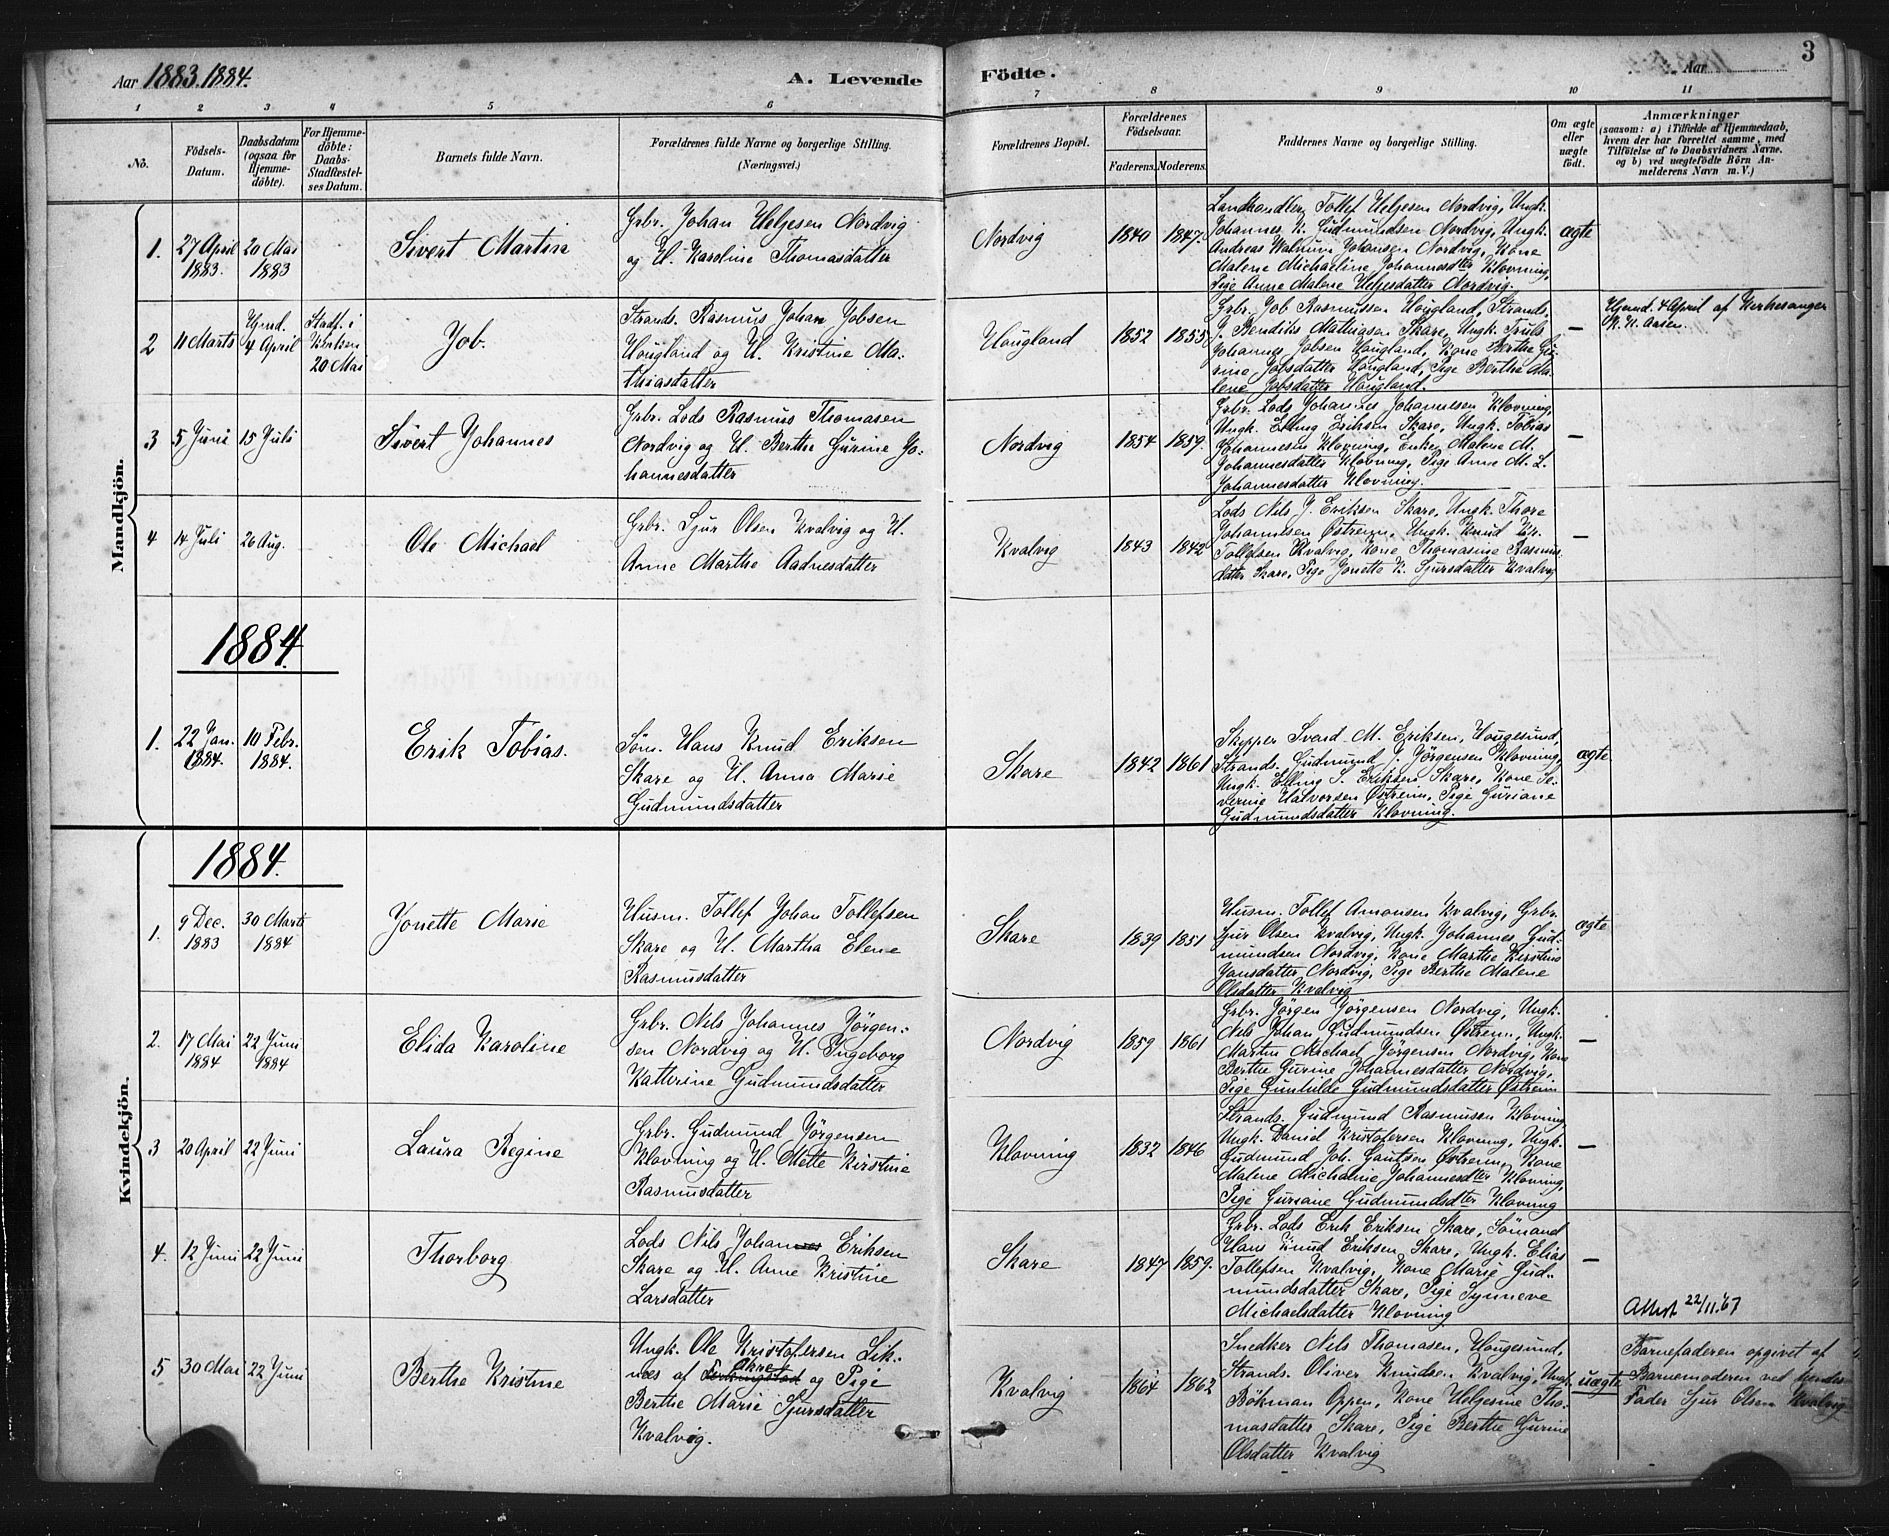 Aar 1883.1884.
A. Levende Födte.
Aar
3
1 2 3 4 5 6 7 8 9 10 11
No.
Födsels-Datum.
Daabsdatum (ogsaa for Hjemme-döbte).
For Hjemme-döbte: Daabs-Stadfæstel-ses Datum.
Barnets fulde Navn.
Forældrenes fulde Navne og borgerlige Stilling.
(Næringsvei.)
Forældrenes Bopæl.
Forældrenes Födselsaar.
Faderens. Moderens.
Faddernes Navne og borgerlige Stilling.
Om ægte eller uægte födt.
Anmærkninger
(saasom: a) i Tilfælde af Hjemmedaab,
hvem der har forrettet samme, med
Tilföielse af to Daabsvidners Navne,
og b) ved uægtefödte Börn An-
melderens Navn m. V.)
Mandkjön.
1. 27 April 1883. 20 Mai 1883
Sivert Martin
Grbr. Johan Helgesen Nordvig
og H. Karoline Thomasdatter
Nordvig
1840 1847.
Landhandler Tollef Helgesen Nordvig, Ungk.
Johannes K. Gudmundsen Nordvig, Ungk.
Andreas Johansen Nordvig, Kone
Malene Michaeline Johannesdter Klovning,
Pige Anne Malene Helgesdatter Nordvig.
ægte
2 11 Marts
Hjmd. 4 April
Stadf. i Kirken 20 Mai
Job.
Strands. Rasmus Johan Jobsen
Hougland og H. Kristine Ma-
thiasdatter
Hougland
1852 1855
Grbr. Job Rasmussen Hougland, Strands.
J. Bendiks Mathiasen Skare, Ungk.
Johannes Jobsen Hougland, Kone Berthe Gu-
rine Jobsdatter Hougland, Pige Berthe Ma-
lene Jobsdatter Hougland.
—
Hjmd. 4 April af Kirkesanger
K. H. Aasen.
3 5 Juni 15 Juli
Sivert Johannes
Grbr. Lods Rasmus Thomasen
Nordvig og H. Berthe Gurine Jo-
hannesdatter
Nordvig
1854 1859.
Grbr. Lods Johannes Johannesen Klovning,
Ungk. Elling Eriksen Skare, Ungk. Tobias
Johannesen Klovning, Enke Malene M.
Johannesdatter Klovning, Pige Anne M. L.
Johannesdatter Klovning.
—
4 14 Juli 26 Aug.
Ole Michael
Grbr. Sjur Olsen Kvalvig og H.
Anne Marthe Aadnesdatter
Kvalvig
1843 1842
Lods Nils J. Eriksen Skare, Ungk. Thore
Johannesen Østreim, Ungk. Knud Kr.
Tollefsen Kvalvig, Kone Thomasine Rasmus-
datter Skare, Pige Jonette K. Sjursdatter Kvalvig
—
1884.
1. 22 Jan. 1884. 10 Febr. 1884.
Erik Tobias.
Søm. Hans Knud Eriksen
Skare og H. Anna Marie
Gudmundsdatter
Skare
1842 1861
Skipper Svend M. Eriksen, Hougesund,
Strands. Gudmund J. Jørgensen Klovning,
Ungk. Elling S. Eriksen Skare, Kone Se-
verine Halvorsen Østreim, Pige Guriane
Gudmundsdatter Klovning.
ægte
Kvindekjön.
1884.
1. 9 Dec. 1883 30 Marts 1884
Jonette Marie
Husm. Tollef Johan Tollefsen
Skare og H. Martha Elene
Rasmusdatter
Skare
1839 1851
Husm. Tollef Amonsen Kvalvig, Grbr.
Sjur Olsen Kvalvig, Ungk. Johannes Gud-
mundsen Nordvig, Kone Marthe Kirstine
Jansdatter Nordvig, Pige Berthe Malene
Olsdatter Kvalvig
ægte
2. 17 Mai 1884 22 Juni 1884
Elida Karoline
Grbr. Nils Johannes Jörgen-
sen Nordvig og H. Ingeborg
Kathrine Gudmundsdatter
Nordvig
1859 1861
Grbr. Jörgen Jörgensen Nordvig, Ungk.
Nils Johan Gudmundsen Østrem, Ungk.
Martin Michael Jörgensen Nordvig, Kone
Berthe Gurine Johannesdatter Nordvig,
Pige Gunhilde Gudmundsdatter Østreim
—
3 20 April 22 Juni
Laura Regine
Grbr. Gudmund Jörgensen
Klovning og H. Mette Kirstine
Rasmusdatter
Klovning
1832 1846
Strands. Gudmund Rasmusen Klovning
Ungk. Daniel Kristofersen Klovning, Ungk.
Gudmund Joh. Gautsen Østreim, Kone
Malene Michaline Johannesdter Klovning,
Pige Guriane Gudmundsdter Klovning
—
4. 12 Juni 22 Juni
Thorborg
Lods Nils Johannes Eriksen
Skare og H. Anne Kristine
Larsdatter
Skare
1847 1859.
Grbr. Lods Erik Eriksen Skare, Sømand
Hans Knud Eriksen Skare, Ungk. Elias
Tollefsen Kvalvig, Kone Marie Gud-
mundsdatter Skare, Pige Synneve
Michaelsdatter Klovning
—
Attest 22/11.67
5 30 Mai 22 Juni
Berthe Kristine
Ungk. Ole Kristofersen Lik-
næs af Ferkingstad Akre og Pige
Berthe Marie Sjursdatter
Kvalvig.
Kvalvig
1864 1862
Snedker Nils Thomasen, Hougesund,
Strands. Oliver Knudsen Kvalvig, Ungk.
Bökman Oppen, Kone Helgesine Tho-
masdatter Skare, Pige Berthe Gurine
Olsdatter Kvalvig
uægte
Barnefaderen opgivet af
Barnemoderen ved hendes
Fader Sjur Olsen Kvalvig